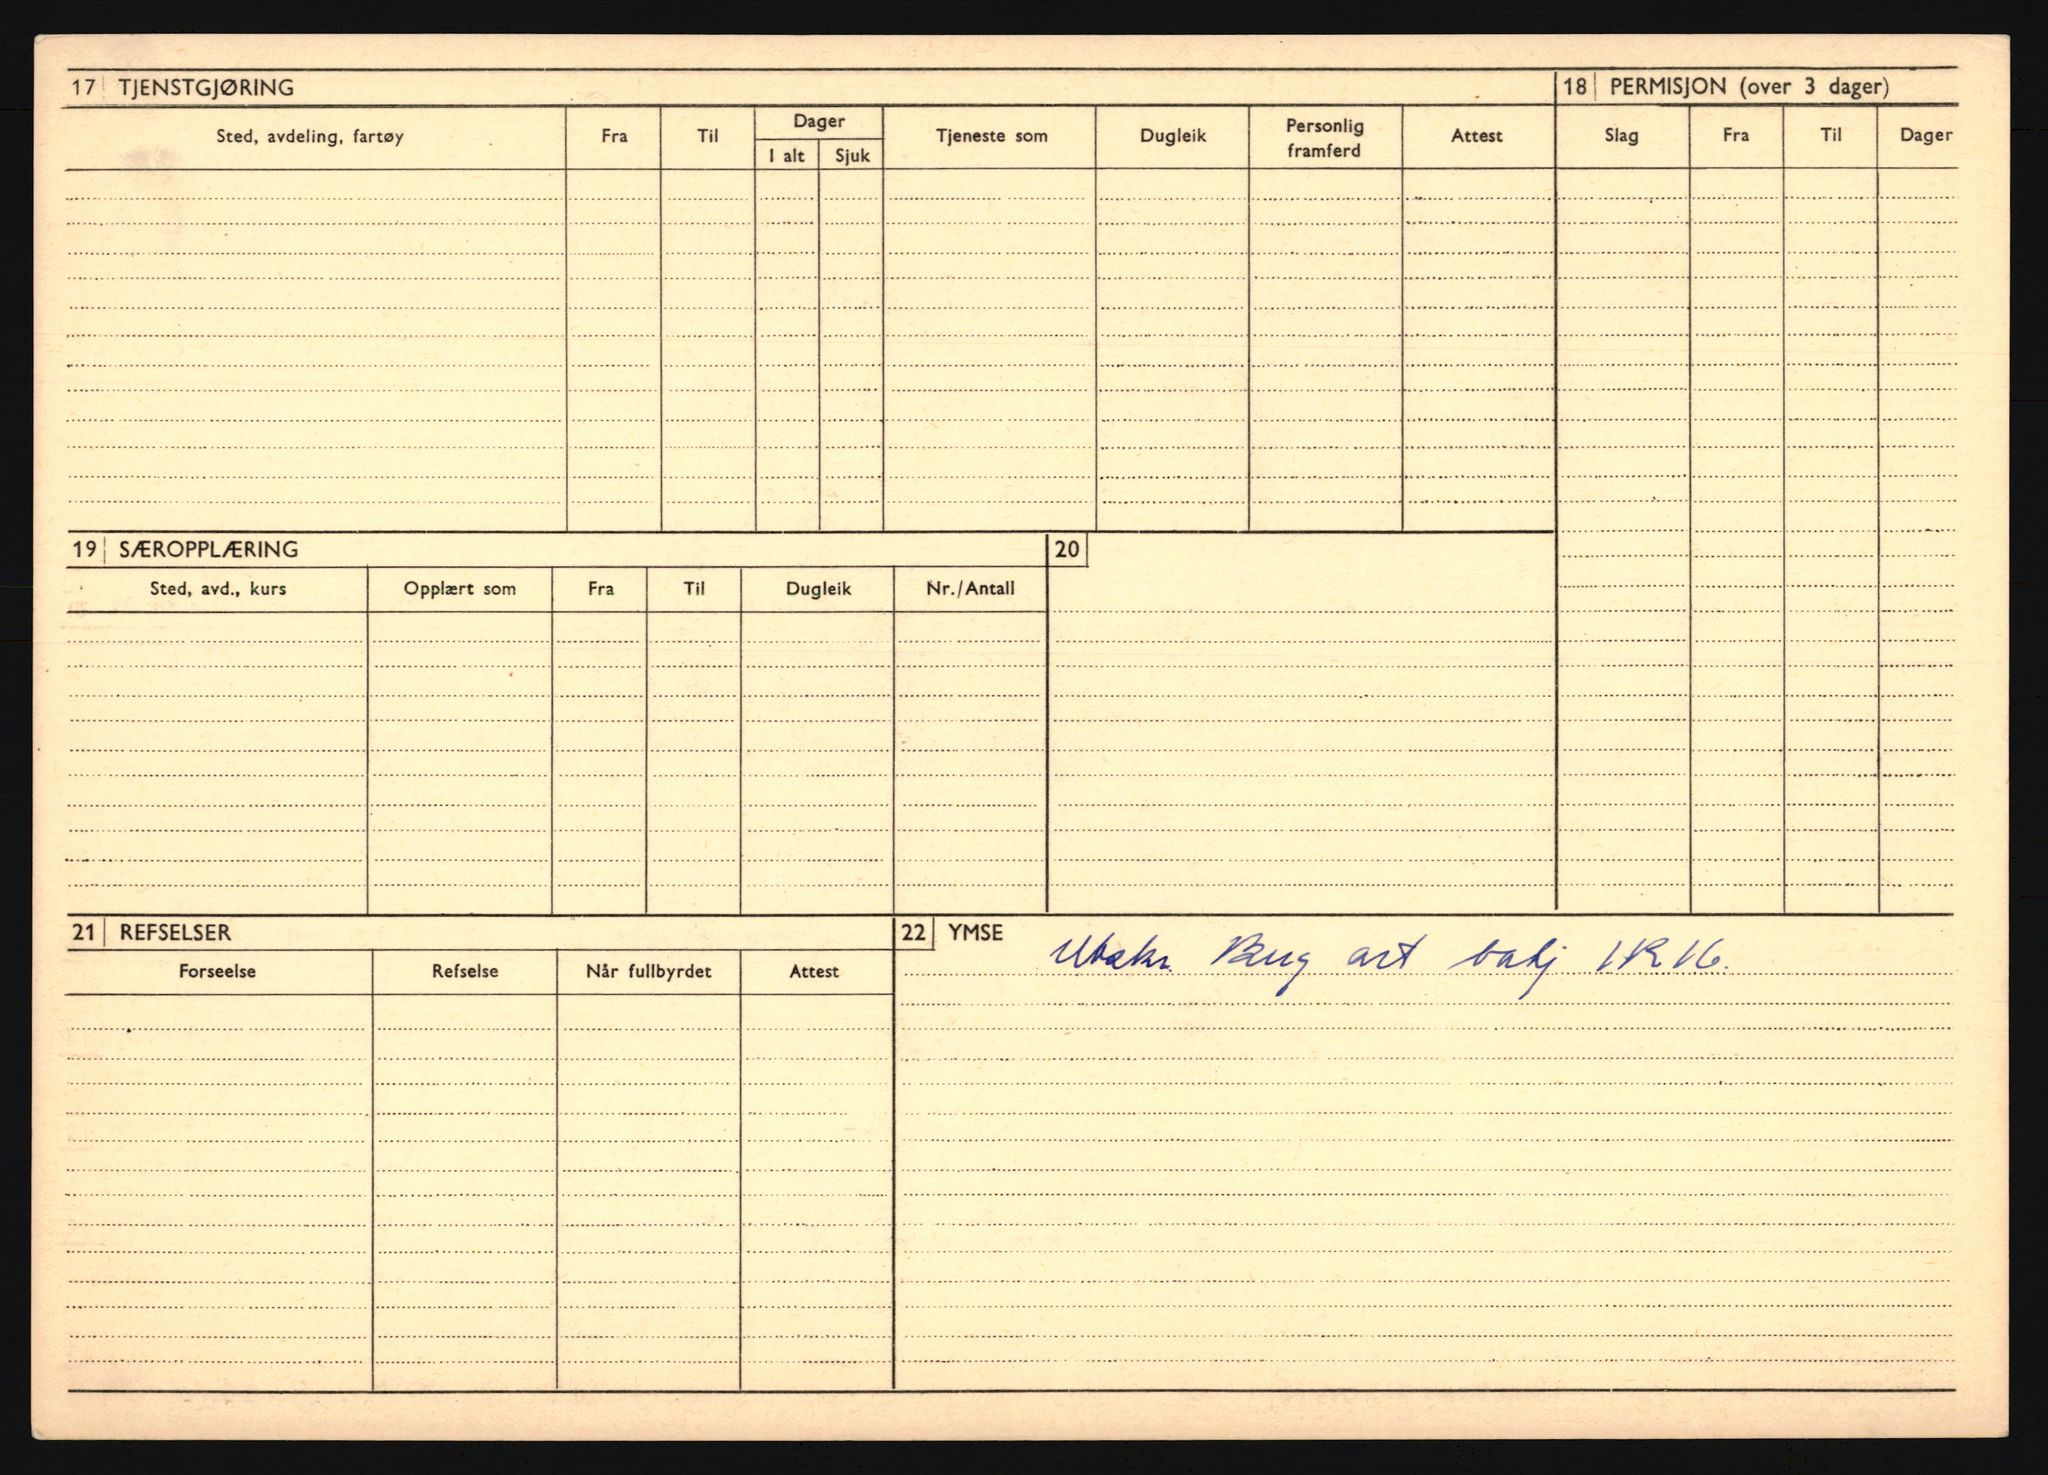 17 TJENSTGJØRING
18 PERMISJON (over 3 dager)
Sted, avdeling, fartøy Fra Til Dager Tjeneste som Dugleik Personlig framferd Attest Slag Fra Til Dager
I alt Sjuk
19 SÆROPPLÆRING
20
Sted, avd., kurs Opplært som Fra Til Dugleik Nr./Antall
21 REFSELSER
22 YMSE
Berg art batj IR 16.
Forseelse Refselse Når fullbyrdet Attest